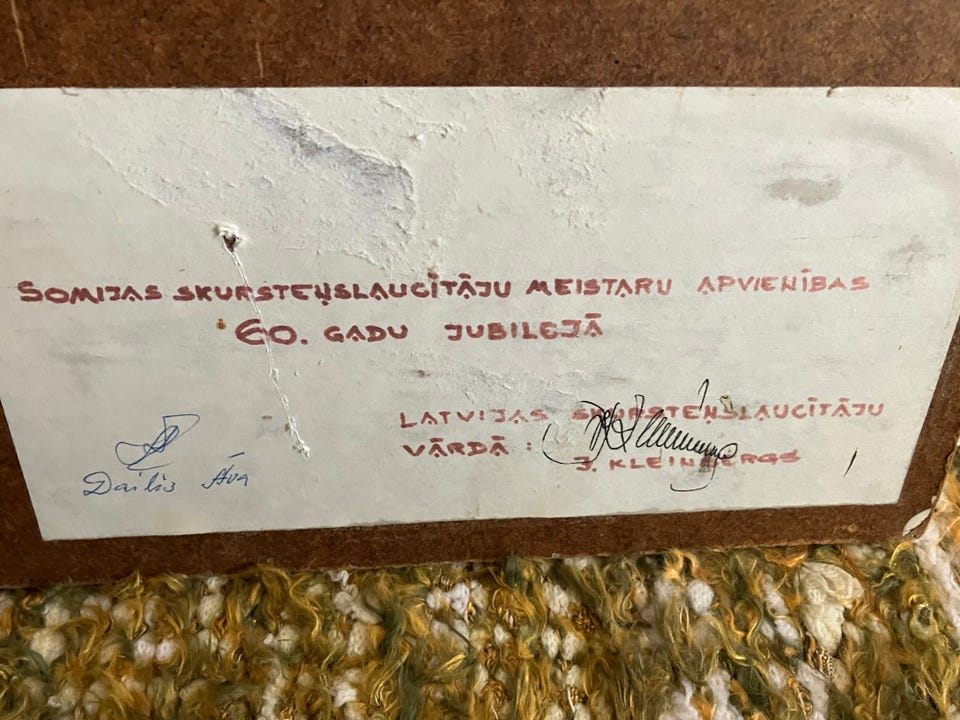 SOMIJAS SKURSTEŅSLAUCĪTĀJU MEISTARU APVIENĪBAS
60. GADU JUBILEJĀ
LATVIJAS SKURSTEŅSLAUCĪTĀJU
VĀRDĀ:
J. KLEINBERGS
Dailis